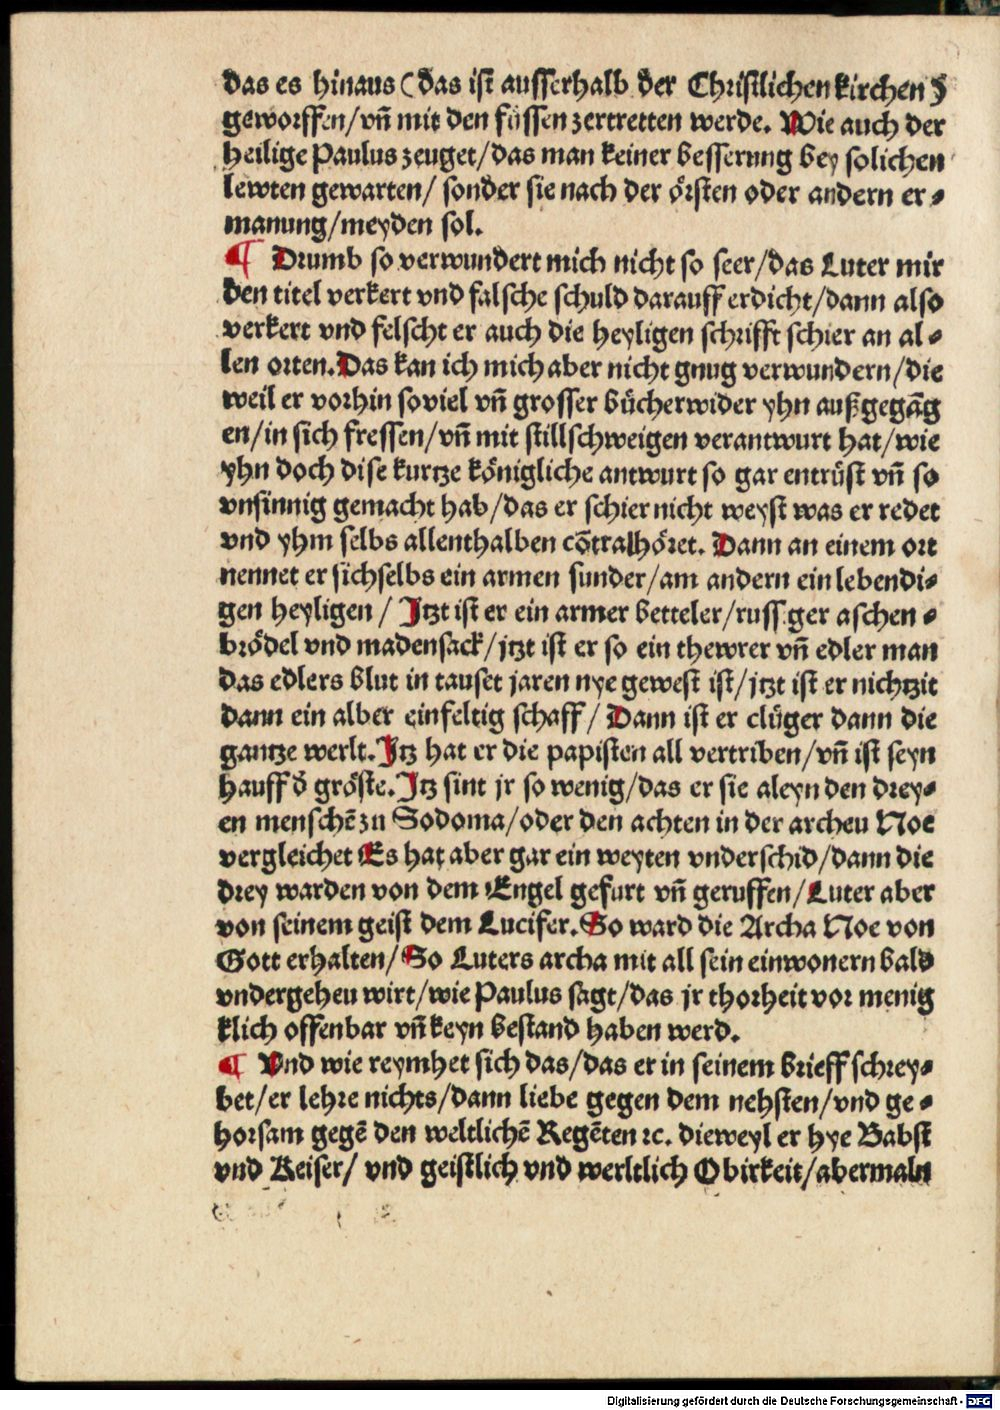 das es hinaus (das ist ausserhalb der Christlichen kirchen)
geworffen/vñ mit den füssen zertretten werde. Wie auch der
heilige Paulus zeuget/das man keiner besserung bey solichen
lewten gewarten/ sonder sie nach der örsten oder andern er⸗
manung/meyden sol.
¶ Drumb so verwundert mich nicht so seer/das Luter mir
den titel verkert vnd falsche schuld darauff erdicht/dann also
verkert vnd felscht er auch die heyligen schrifft schier an al⸗
len orten. Das kan ich mich aber nicht gnug verwundern/die
weil er vorhin soviel vñ grosser bücher wider yhn außgegãg
en/in sich fressen/vñ mit stillschweigen verantwurt hat/wie
yhn doch dise kurtze königliche antwurt so gar entrüst vñ so
vnsinnig gemacht hab/das er schier nicht weyst was er redet
vnd yhm selbs allenthalben cõtralhöret. Dann an einem ort
nennet er sichselbs ein armen sunder/am andern ein lebendi⸗
gen heyligen/ Jtzt ist er ein armer betteler/russiger aschen⸗
brödel vnd madensack/jtzt ist er so ein thewrer vñ edler man
das edlers blut in tauset jaren nye gewest ist/jtzt ist er nichtzit
dann ein alber einfeltig schaff/ Dann ist er clüger dann die
gantze werlt. Jtz hat er die papisten all vertriben/vñ ist seyn
hauff ð gröste. Jtz sint jr so wenig/das er sie aleyn den drey⸗
en menschẽ zu Sodoma/oder den achten in der archeu Noe
vergleichet Es hat aber gar ein weyten vnderschid/dann die
drey warden von dem Engel gefurt vñ geruffen/Luter aber
von seinem geist dem Lucifer. So ward die Archa Noe von
Gott erhalten/So Luters archa mit all sein einwonern bald
vndergeheu wirt/wie Paulus sagt/das jr thorheit vor menig
klich offenbar vñ keyn bestand haben werd.
¶ Vnd wie reymhet sich das/das er in seinem brieff schrey⸗
bet/er lehre nichts/dann liebe gegen dem nehsten/vnd ge⸗
horsam gegẽ den weltlichẽ Regẽten ꝛc. dieweyl er hye Babst
vnd Keiser/ vnd geistlich vnd werltlich Obirkeit/abermaln
Digitalisierung gefördert durch die Deutsche Forschungsgemeinschaft - DFG